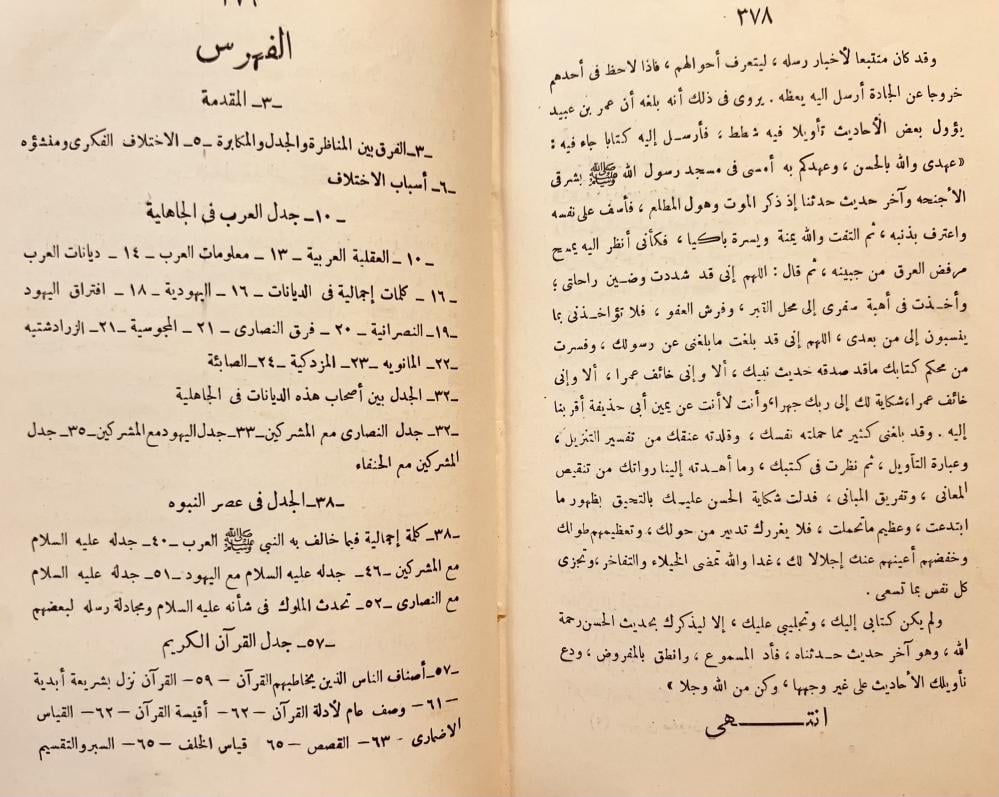 ٣٧٨
وقد كان متتبعا لأخبار رسله ، ليتعرف أحوالهم ، فاذا لاحظ فى أحدهم
خروجا عن الجادة أرسل اليه يعظه . يروى فى ذلك أنه بلغه أن عمر بن عبيد
يؤول بعض الأحاديث تأويلا فيه شطط ، فأرسل إليه كتابا جاء فيه :
« عهدى والله بالحسن ، وعهدكم به أمسى فى مسجد رسول الله ﷺ بشرقى
الأجنحه وآخر حديث حدثنا إذ ذكر الموت وهول المطلع ، فأسف على نفسه
واعترف بذنبه ، ثم التفت والله يمنة ويسرة باكيا ، فكأنى أنظر اليه يمسح
مرفض العرق من جبينه ، ثم قال : اللهم إنى قد شددت وضين راحلتى ؛
وأخذت فى أهبة سفرى إلى محل القبر ، وفرش العفو ، فلا تؤاخذنى بما
ينسبون إلى من بعدى ، اللهم إنى قد بلغت مابلغنى عن رسولك ، وفسرت
من محكم كتابك ماقد صدقه حديث نبيك ، ألا وإنى خائف عمرا ، ألا وإنى
خائف عمرا ، شكاية لك إلى ربك جهرا ، وأنت لا أنت عن يمين أبى حذيفة أقربنا
إليه . وقد بلغنى كثير مما حملته نفسك ، وقلدته عنقك من تفسير التنزيل ،
وعبارة التأويل ، ثم نظرت فى كتبك ، وما أهدته إلينا رواتك من تنقيص
المعانى ، وتفريق المبانى ، فدلت شكاية الحسن عليك بالتحيق بظهور ما
ابتدعت ، وعظيم ماتحملت ، فلا يغررك تدبير من حولك ، وتعظيمهم طولك
وخفضهم أعينهم عنك إجلالا لك ، غدا والله تمضى الخيلاء والتفاخر ، وتجزى
كل نفس بما تسعى .
ولم يكن كتابى إليك ، وتجليبى عليك ، إلا ليذكرك بحديث الحسن رحمة
الله ، وهو آخر حديث حدثناه ، فأد المسموع ، وانطق بالمفروض ، ودع
تأويلك الأحاديث على غير وجهها ، وكن من الله وجلا »
انتهى
الفهرس
ـ٣ـ المقدمة
ـ٣ـ الفرق بين المناظرة والجدل والمكابرة ـ٥ـ الاختلاف الفكرى ومنشؤه
ـ٦ـ أسباب الاختلاف
ـ١٠ـ جدل العرب فى الجاهلية
ـ١٠ـ العقلية العربية ـ١٣ـ معلومات العرب ـ١٤ـ ديانات العرب
ـ١٦ـ كلمات إجمالية فى الديانات ـ١٦ـ اليهودية ـ١٨ـ افتراق اليهود
ـ١٩ـ النصرانية ـ٢٠ـ فرق النصارى ـ٢١ـ المجوسية ـ٢١ـ الزرادشتيه
ـ٢٢ـ المانويه ـ٢٣ـ المزدكية ـ٢٤ـ الصابئة
ـ٣٢ـ الجدل بين أصحاب هذه الديانات فى الجاهلية
ـ٣٢ـ جدل النصارى مع المشركين ـ٣٣ـ جدل اليهود مع المشركين ـ٣٥ـ جدل
المشركين مع الحنفاء
ـ٣٨ـ الجدل فى عصر النبوه
ـ٣٨ـ كلمة إجمالية فيما خالف به النبى ﷺ العرب ـ٤٠ـ جدله عليه السلام
مع المشركين ـ٤٦ـ جدله عليه السلام مع اليهود ـ٥١ـ جدله عليه السلام
مع النصارى ـ٥٢ـ تحدث الملوك فى شأنه عليه السلام ومجادلة رسله لبعضهم
ـ٥٧ـ جدل القرآن الكريم
ـ٥٧ـ أصناف الناس الذين يخاطبهم القرآن ـ٥٩ـ القرآن نزل بشريعة أبدية
ـ٦١ـ وصف عام لأدلة القرآن ـ٦٢ـ أقيسة القرآن ـ٦٢ـ القياس
الاضمارى ـ٦٣ـ القصص ـ٦٥ قياس الخلف ـ٦٥ـ السبر والتقسيم